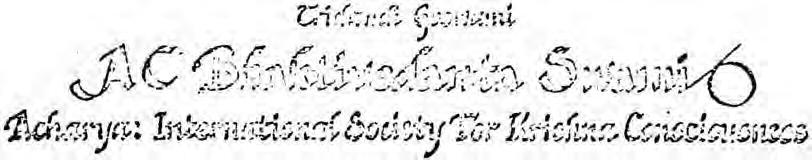 Tridandi Goswami
AC Bhaktivedanta Swami
Acharya: International Society For Krishna Consciousness